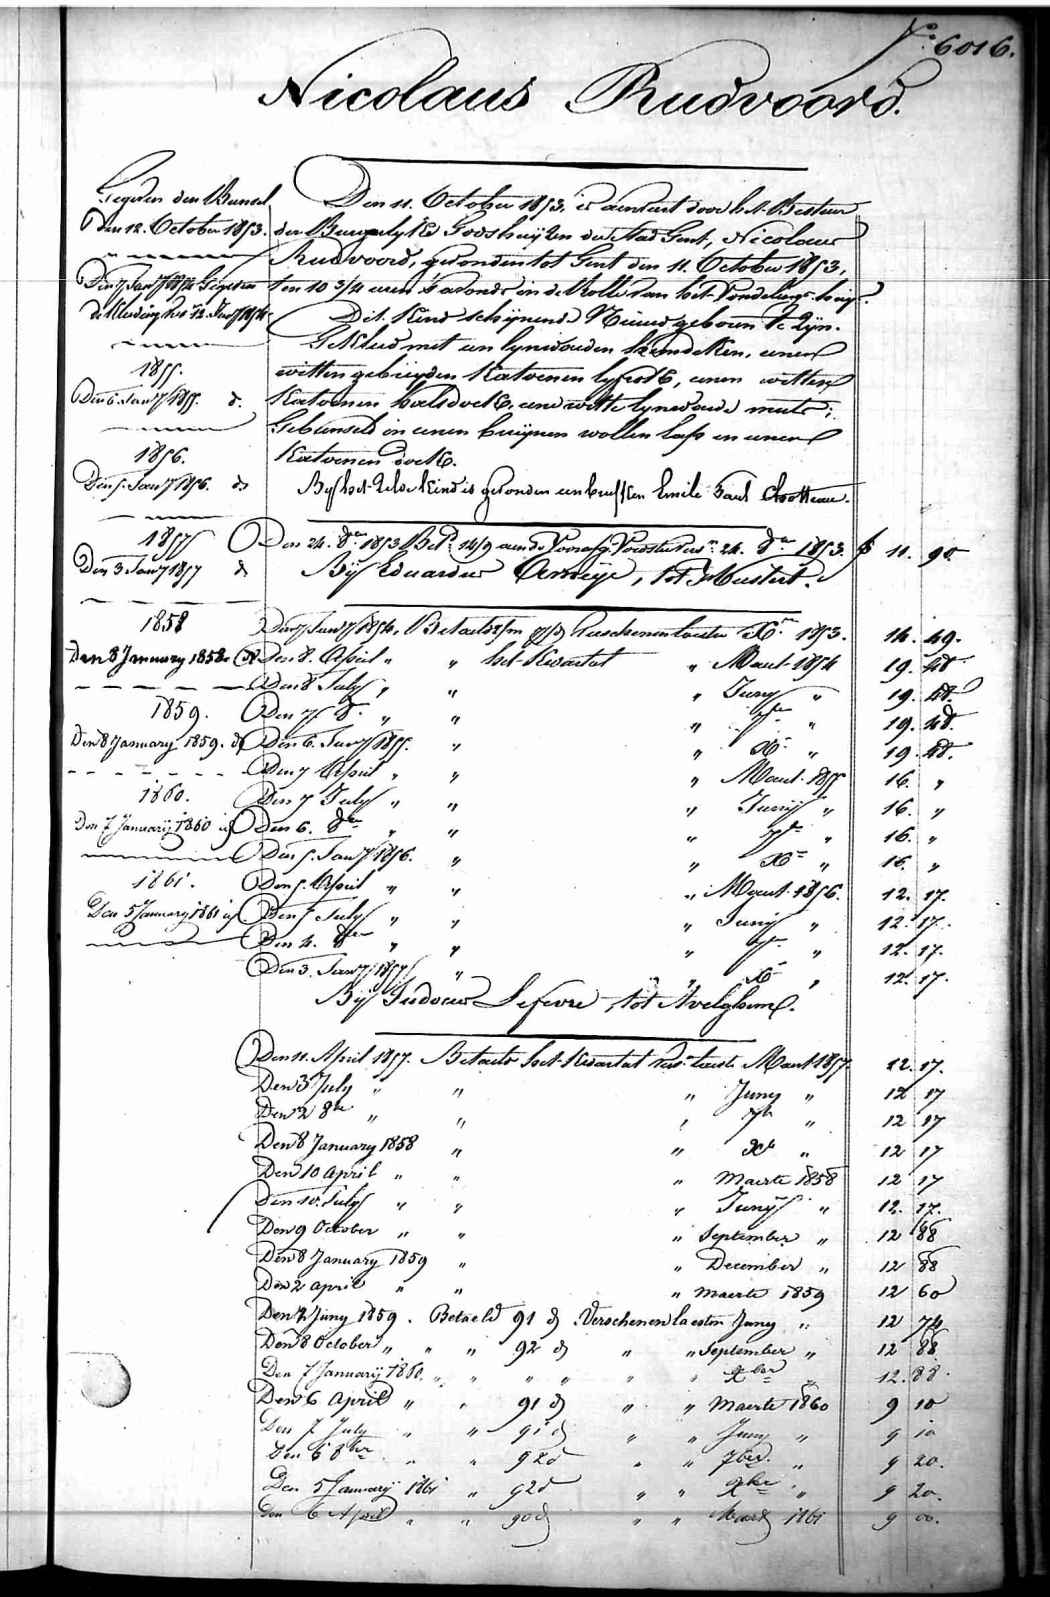 N.o 6016.
Nicolaus Rudvoord.
Gegeven den Bunsel
Den 12. October 1853.
Den 7 Janry 1854 Gegeven
de Kleeding
1855.
Den 6. Janry 1855. d.
1856.
Den 5. Janry 1856. do
1857
Den 3 Janry 1857 d
1858
Den 8 January 1858. do
1859.
Den 8 January 1859. do
1860.
Den 7 Januarij 1860 id
1861.
Den 5 January 1861 id
Den 11. October 1853. is aenveert door het Bestuer
der Burgerlyke Godshuijzen der Stad Gent, Nicolaus
Rudvoord, gevonden tot Gent den 11. October 1853,
ten 10 3/4 uren 's avonds in de Rolle van het Vondelings-huis.
Dit Kind schijnende Nieuw geboren te Zijn.
Gekleed met een lynwaden hemdeken, eenen
witten gebreyden Katoenen lyfrok, eenen witten
Katoenen halsdoek, eene witte lynwaede muts;
Gebunseld in eenen bruijnen wollen lap en eenen
Katoenen doek.
By het zelve Kind is gevonden een briefken Emile Paul
Den 24. 8re 1853 14/9 24. 8re 1853. f 11. 90.
Bij Eduardus tot
Den 7 Janry 1854. Betaeld Verschenen laesten Xre 1853. 14. 49.
Den 8. April " " het Kwartal " Maert 1854 19. 48
Den 8 July " " " Juny " 19. 48.
Den 7 8re " " " 7re " 19. 48.
Den 6. Janry 1855. " " Xre " 19. 48.
Den 7 April " " " Maert 1855 16. "
Den 7 July " " " Junij " 16. "
Den 6. 8re " " " 7re " 16. "
Den 5. Janry 1856. " " Xre " 16. "
Den 5. April " " " Maert 1856. 12. 17.
Den 5 July " " " Junij " 12. 17.
Den 4. 8re " " " 7re " 12. 17.
Den 3. Janry 1857 " " Xre " 12. 17.
Bij Judocus Lefevre, tot Avelghem.
Den 11. April 1857. Betaeld het Kwartal Maert 1857. 12. 17.
Den 3 July " " " Juny " 12 17
Den 2 8re " " " 7re " 12 17
Den 8 January 1858 " " Xre " 12 17
Den 10 April " " " Maerte 1858 12 17
Den 10. July " " " Junij " 12. 17.
Den 9 October " " " September " 12 88
Den 8 January 1859 " " December " 12 88
Den 2 april " " " maerte 1859 12 60
Den 2 Juny 1859. Betaeld 91 d Verschenen laesten Juny " 12 74
Den 8 October " " " 92 d " " September " 12 88
Den 7 Januarij 1860. " " " " " " Xber 12. 88.
Den 6 April " " 91 d " " Maerte 1860 9 10
Den 7 July " " 91 d " " Juny " 9 10
Den 6 8ber " " 92 d " " 7ber " 9 20.
Den 5 January 1861 " 92 d " " Xber " 9 20.
Den 6 April " " 90 d " " Maert 1861 9 00.